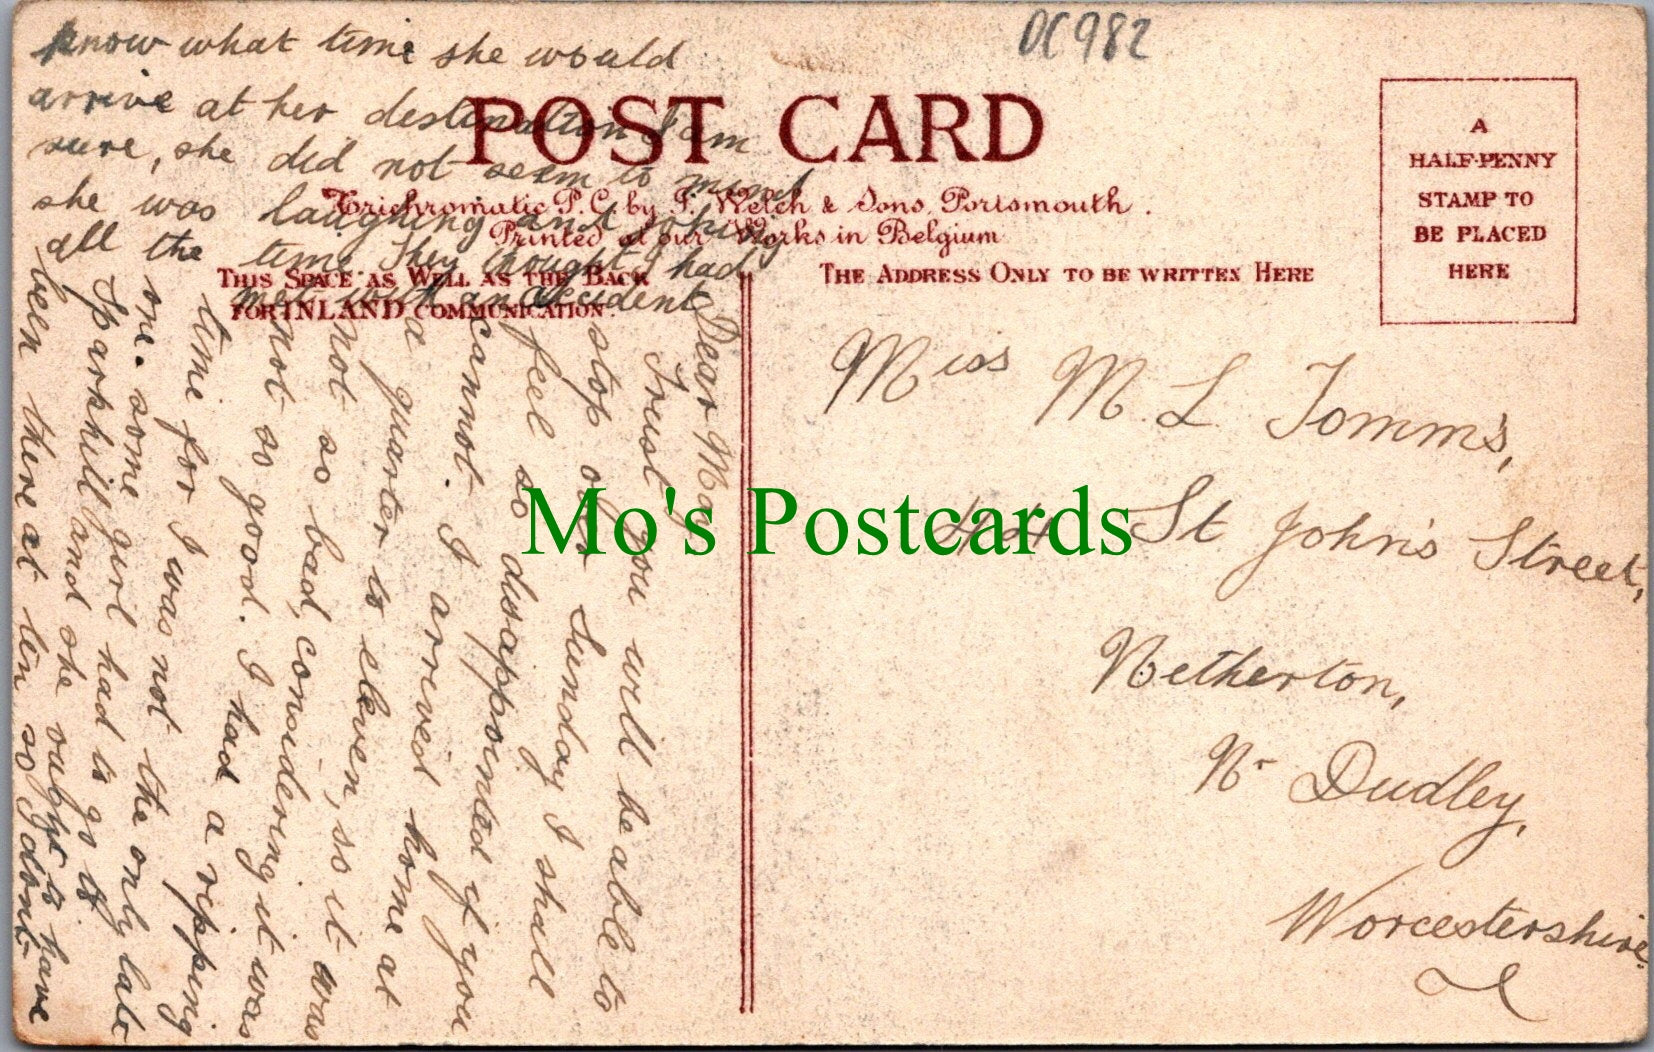 know what time she would
arrive at her destination I am
sure, she did not seem to mind
she was laughing and joking
all the time. They thought I had
met with an accident
DC982
POST CARD
Trichromatic P.C. by J. Welch & Sons, Portsmouth.
Printed at our Works in Belgium
THIS SPACE AS WELL AS THE BACK
FOR INLAND COMMUNICATION.
THE ADDRESS ONLY TO BE WRITTEN HERE
A
HALF-PENNY
STAMP TO
BE PLACED
HERE
Dear May
Trust you will be able to
stop over Sunday I shall
feel so disappointed if you
cannot. I arrived home at
a quarter to eleven, so it was
not so bad, considering it was
not so good. I had a ripping
time for I was not the only late
one. some girl had to go to
Sparkhill and she ought to have
been there at ten so I dont
Miss M. L. Tomms,
St John's Street,
Netherton,
Nr Dudley,
Worcestershire.
Mo's Postcards